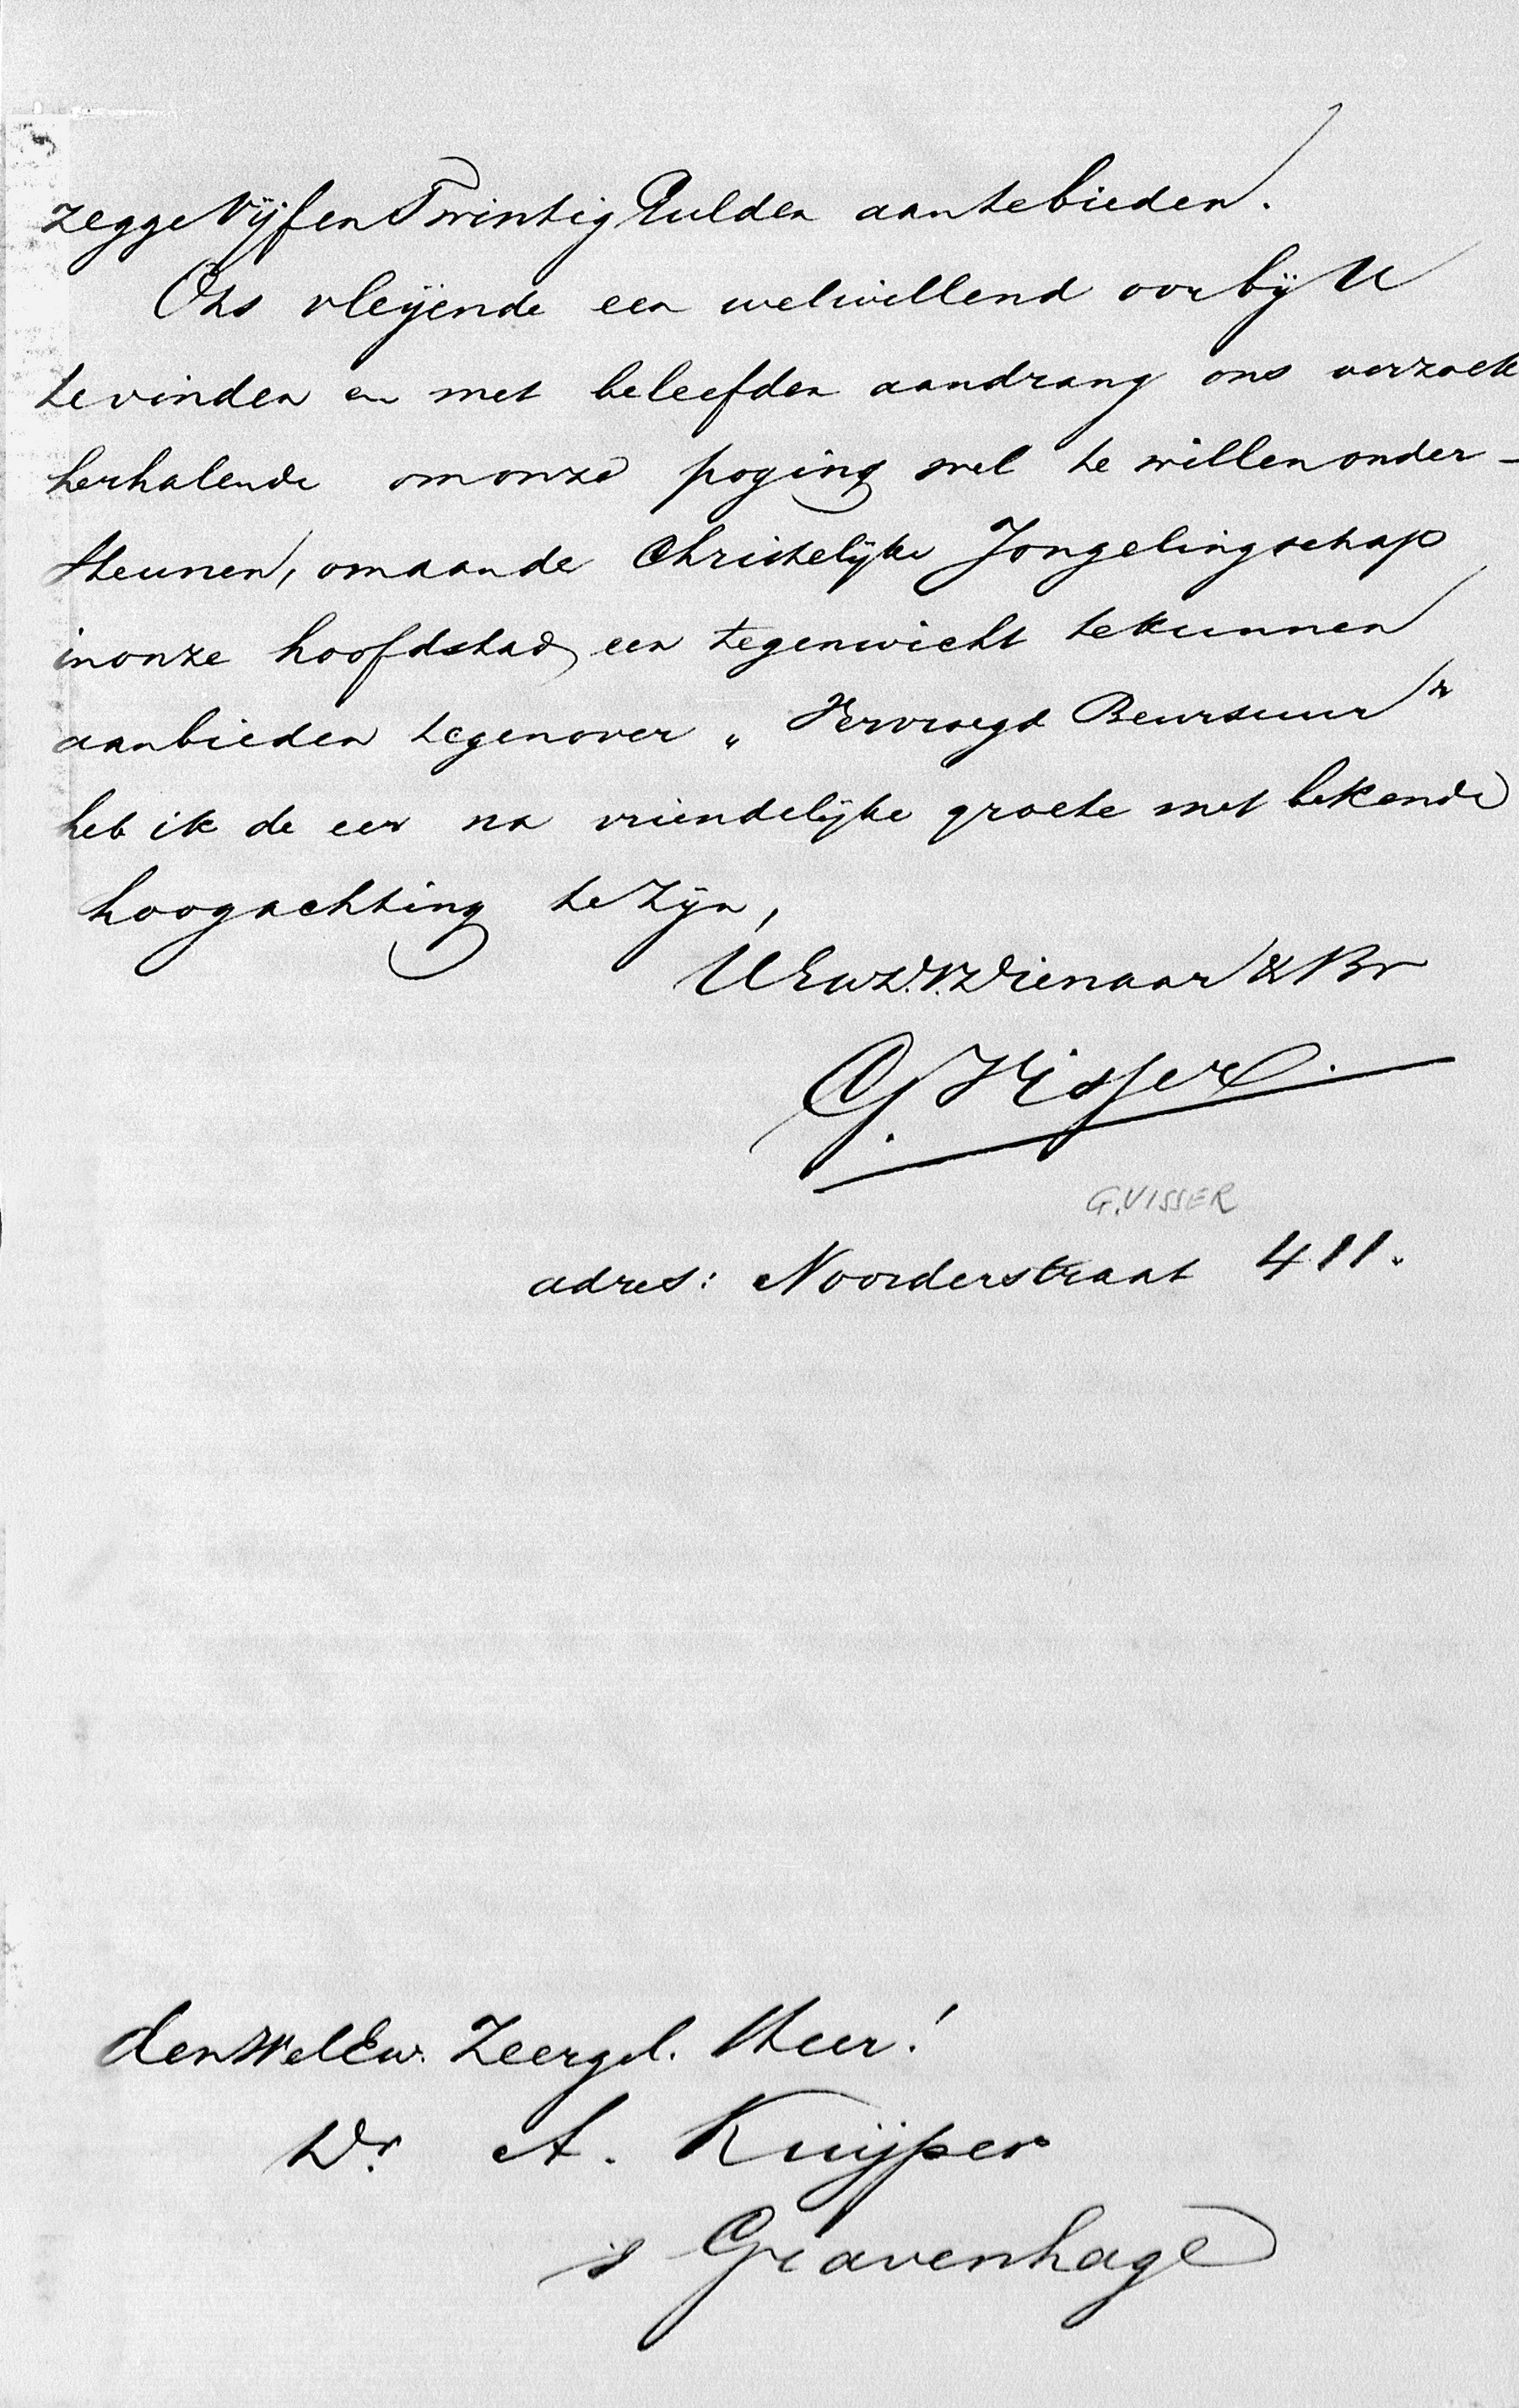 zegge Vijf en Twintig Gulden aantebieden.
Ons vleijende een welwillend oor bij U
te vinden en met beleefden aandrang ons verzoek
herhalende om onze poging wel te willen onder-
steunen, om aan de Christelijke Jongelingschap
in onze hoofdstad een tegenwicht te kunnen
aanbieden tegenover „Vervroegd Beursuur”
heb ik de eer na vriendelijke groete met bekende
hoogachting te zijn,
UEw. Dienaar & Br
G. Visser.
G. VISSER
adres: Noorderstraat 411.
den WelEw. Zeergel. Heer!
Dr. A. Kuijper
s Gravenhage